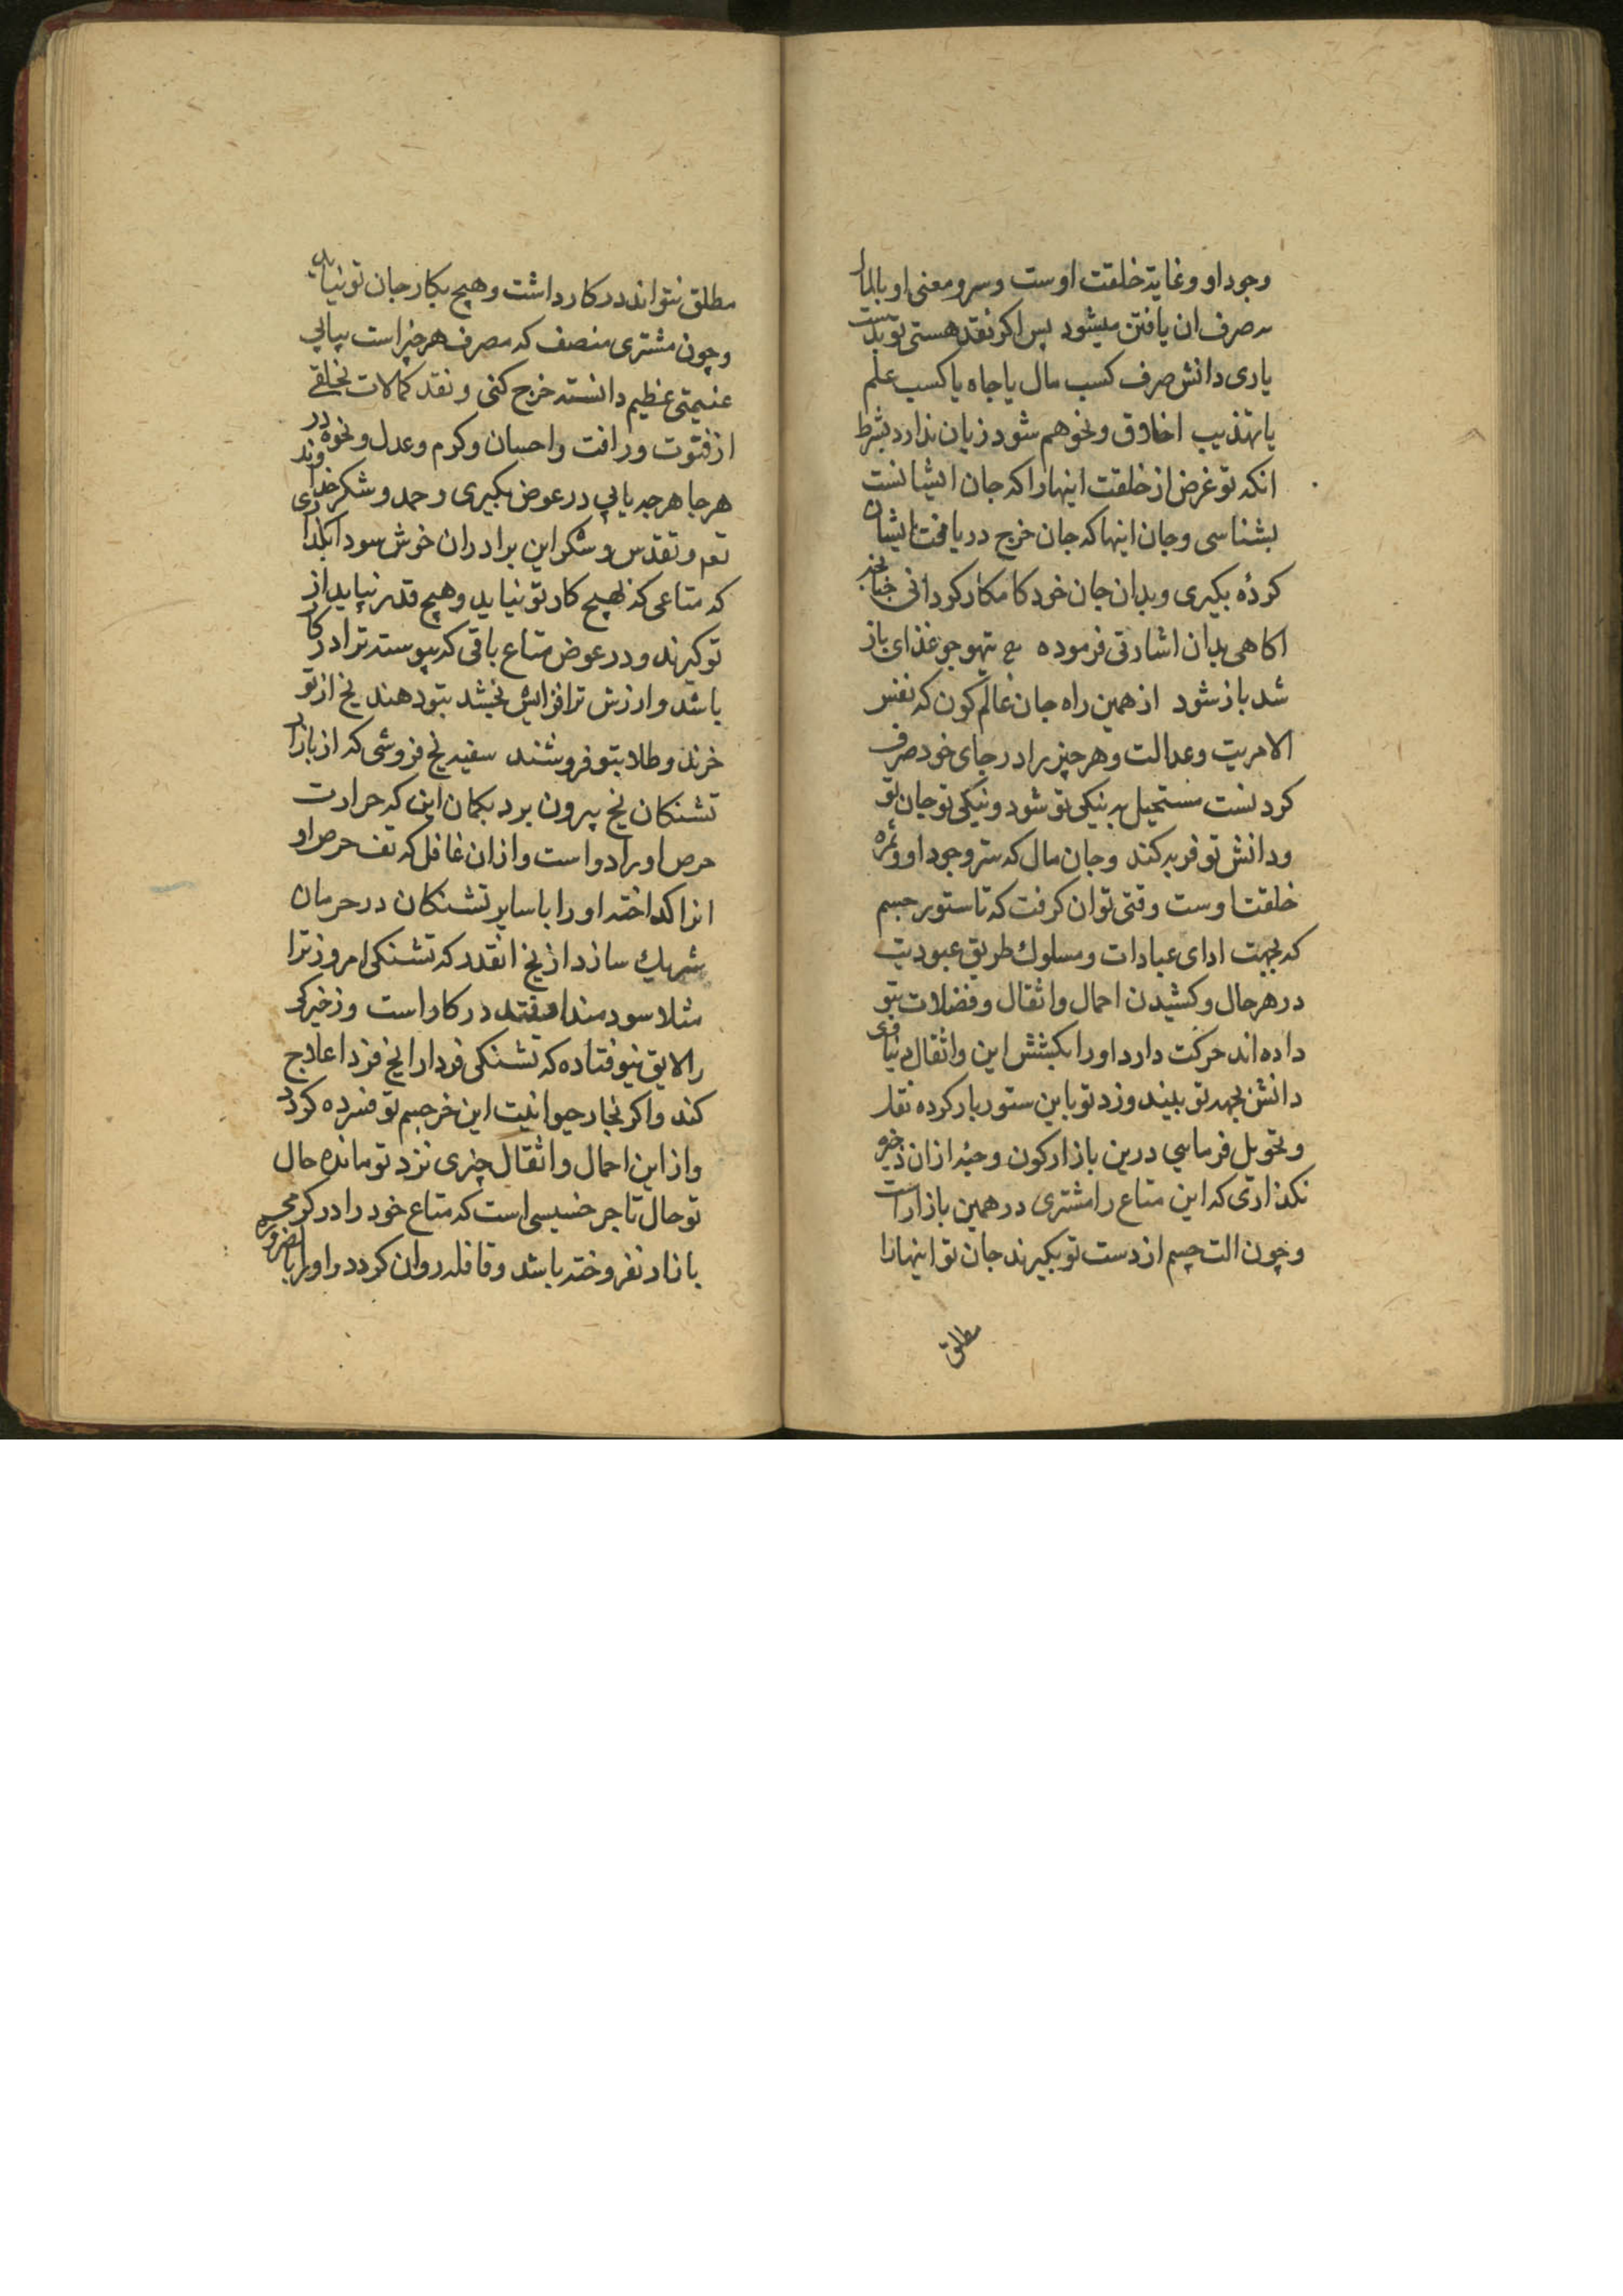 وجود او وغایة خلقت اوست وسر ومعنی او بالمال
به صرف ان یافتن میشود پس اکر نقد هستی تو بدست
یاری دانش صرف کسب مال یا جاه یا کسب علم
یا تهذیب اخلاق ونحو هم شود زیان ندارد بشرط
انکه تو غرض از خلقت اینها را که جان ایشانست
بشناسی وجان اینها که جان خرج دریافت ایشان
کردۀ بکیری وبدان جان خود کامکار کردانی چنانچه
اکاهی بدان اشارتی فرموده ع تیهو چو غذای باز
شد باز شود از همین راه جان عالم کون که نفس
الامریت وعدالت وهر چیز برا در جای خود صرف
کردنست مستحیل به نیکی تو شود ونیکی تو جان تو
ودانش تو فربه کند وجان مال که ستر وجود او وثمره
خلقت اوست وقتی توان کرفت که تا ستور جسم
که بجهت ادای عبادات ومسلوك طریق عبودیت
در هر حال وکشیدن احمال واثقال وفضلات بتو
داده اند حرکت دارد او را بکشش این واثقال دنیاوی
دانش بجهد تو بیند وزد تو باین ستور بار کرده نقل
وتحویل فرمایی درین بازار کون وحبۀ ازان ذخیره
نکذاری که این متاع را مشتری در همین بازار است
وچون الت جسم از دست تو بکیرند جان تو اینها را
مطلق
مطلق نتواند در کار داشت وهیچ بکار جان تو نیاید
وچون مشتری منصف که مصرف هر چیز است بیابی
غنیمتی عظیم دانسته خرج کنی ونقد کمالات تخلقی
از فتوت ورافت واحسان وکرم وعدل ونحوه در
هر جا هر چه یابی در عوض بکیری وحمد وشکر خداوند
تعم وتقدس وشکر این برادران خوش سودا بکذاری
که متاعی که بهیچ کار تو نیاید وهیچ قدر نپاید از
تو کیرند ودر عوض متاع باقی که پیوسته ترا در کار
باشد وارزش ترا افزایش بخشد بتو دهند یخ از تو
خرند وطلا بتو فروشند سفیه یخ فروشی که از بازار
تشنکان یخ بیرون برد بکمان این که حرارت
حرص او را دواست وازان غافل که تف حرص او
انرا کداخته او را با سایر تشنکان در حرمان
شریك سازد از یخ انقدر که تشنکی امروز ترا
مثلا سودمند افتد در کار است وذخیرکی
را لایق نیوفتاده که تشنکی فردا را یخ فردا علاج
کند واکر نجار حیوانیت این خر جسم تو فسرده کردد
واز این احمال واثقال چیزی نزد تو مانده حال
تو حال تاجر خسیسی است که متاع خود را در کرمی
بازار نفروخته باشد وقافله روان کردد واو را بالضروره